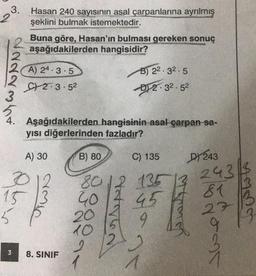 3. Hasan 240 sayısının asal çarpanlarına ayrılmış
şeklini bulmak istemektedir.
Buna göre, Hasan'ın bulması gereken sonuç
aşağıdakilerden hangisidir?
A) 2⁴ · 3 · 5
B) 2² · 3² · 5
C) 2 · 3 · 5²
D) 2 · 3² · 5²
2
2
2
2
2
3
5
4. Aşağıdakilerden hangisinin asal çarpan sa-
yısı diğerlerinden fazladır?
A) 30
B) 80
C) 135
D) 243
30 2
15 3
5
80 2
40 2
20 2
10 5
2
1
135 3
45
9
1
243 3
81 3
27 3
9 3
3
1
3
8. SINIF